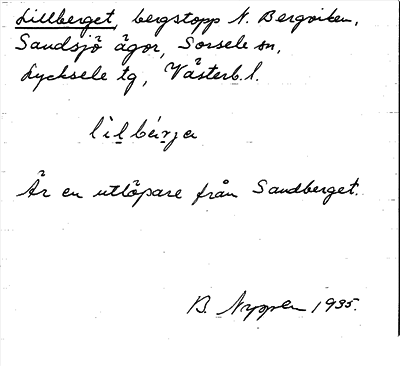 Lillberget, bergstopp N. Bergviken,
Sandsjö ägor, Sorsele sn,
Lycksele tg, Västerb. l.
Är en utlöpare från Sandberget.
B. 1935.